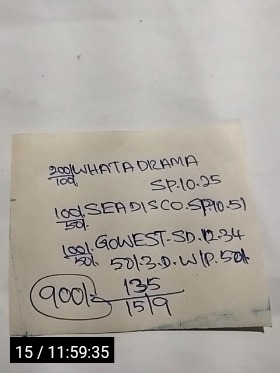 200/- WHATADRAMA
100/-
SP.10.25
100/- SEADISCO.SP10.51
50/-
100/- GOWEST.SD.12.34
50/-
50/-3.D.W/P.50/-
900/- 135
1519
15 / 11:59:35